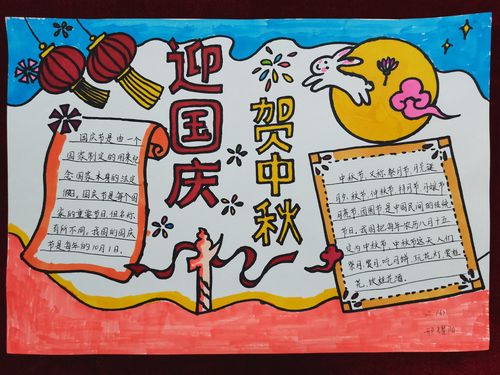 迎国庆
贺中秋
国庆节是由一个
国家制定的用来纪
念国家本身的法定
假日。国庆节是每个国
家的重要节日,但名称
有所不同。我国的国庆
节是每年的10月1日。
中秋节,又称祭月节、月光诞、
月夕、秋节、仲秋节、拜月节、月娘节、
月亮节、团圆节,是中国民间的传统
节日。我国把每年农历八月十五
定为中秋节。中秋节这天人们
祭月、赏月、吃月饼、玩花灯、赏桂
花、饮桂花酒。